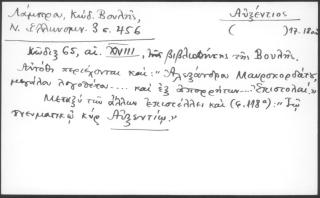 Λάμπρου, Κώδ. Βουλῆς,
Ν. Ἑλληνομν. 3 σ. 456
Αὐξέντιος
( )17.18αι
Κῶδιξ 65, αἰ. XVIII, τῆς βιβλιοθήκης τῆς Βουλῆς.
Αὐτόθι περιέχονται καὶ: "Ἀλεξάνδρου Μαυροκορδάτου
μεγάλου λογοθέτου.... καὶ ἐξ ἀπορρήτων... Ἐπιστολαί."
Μεταξὺ τῶν ἄλλων ἐπιστέλλει καὶ (φ. 118α): "Τῷ
πνευματικῷ κὺρ Αὐξεντίῳ."